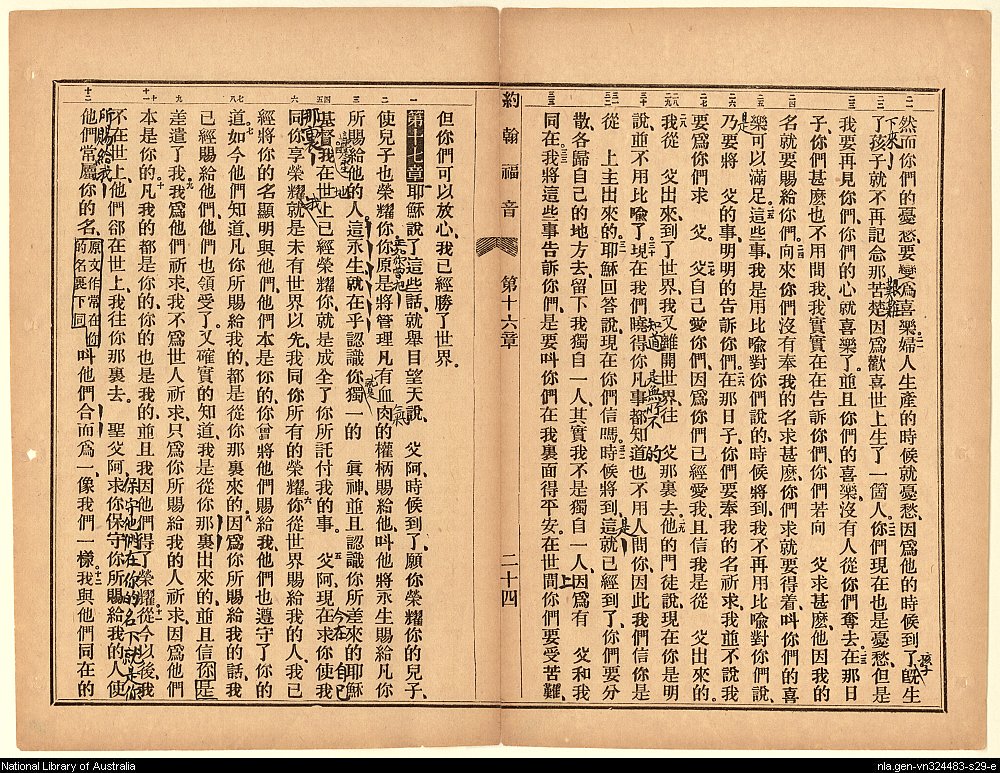 然而你們的憂愁、要變爲喜樂、婦人生產的時候就憂愁、因爲他的時候到了、旣生
了孩子就不再記念那苦楚、因爲歡喜世上生了一箇人、你們現在也是憂愁、但是
我要再見你們、你們的心就喜樂了、並且你們的喜樂、沒有人從你們奪去、在那日
子、你們甚麽也不用問我、我實實在在告訴你們、你們若向 父求甚麽、他因我的
名就要賜給你們、向來你們沒有奉我的名求甚麽、你們求就要得着、呌你們的喜
樂可以滿足、這些事、我是用比喩對你們說的、時候將到、我不再用比喩對你們說、
乃要將 父的事、明明的告訴你們、在那日子、你們要奉我的名祈求、我並不說我
要爲你們求 父、父自己愛你們、因爲你們已經愛我、且信我是從 父出來的、
我從 父出來、到了世界、我又離開世界、往 父那裏去、他的門徒說、現在你是明
說、並不用比喩了、現在我們曉得你凡事都知道、也不用人問你、因此我們信你是
從 上主出來的、耶穌回答說、現在你們信嗎、時候將到、這就已經到了、你們要分
散、各歸自己的地方去、留下我獨自一人、其實我不是獨自一人、因爲有 父和我
同在、我將這些事告訴你們、是要呌你們在我裏面得平安、在世間你們要受苦難、
約翰福音 第十六章 二十四
但你們可以放心、我已經勝了世界。
第十七章 耶穌說了這些話、就舉目望天說、 父阿、時候到了、願你榮耀你的兒子、
使兒子也榮耀你、你原是將管理凡有血肉的權柄賜給他、呌他將永生賜給凡你
所賜給他的人、這永生就在乎認識你獨一的 眞神、並且認識你所差來的耶穌
基督、我在世上已經榮耀你、就是成全了你所託付我的事。 父阿、現在求你使我
同你享榮耀、就是未有世界以先、我同你所有的榮耀、你從世界賜給我的人、我已
經將你的名顯明與他們、他們本是你的、你曾將他們賜給我、他們也遵守了你的
道、如今他們知道、凡你所賜給我的、都是從你那裏來的、因爲你所賜給我的話、我
已經賜給他們、他們也領受了、又確實的知道、我是從你那裏出來的、並且信你
差遣了我、我爲他們祈求、我不爲世人祈求、只爲你所賜給我的人祈求、因爲他們
本是你的、凡我的都是你的、你的也是我的、並且我因他們得了榮耀、從今以後、我
不在世上、他們卻在世上、我往你那裏去。 聖父阿、求你保守你所賜給我的人、使
他們常屬你的名、原文作常在你的名裏下同 呌他們合而爲一、像我們一樣、我與他們同在的
National Library of Australia
nla.gen-vn324483-s29-e